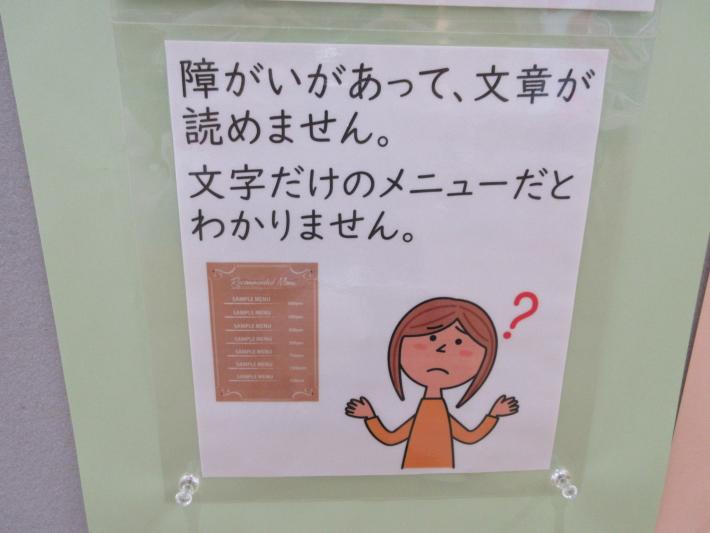 障がいがあって、文章が
読めません。
文字だけのメニューだと
わかりません。
Recommended Menu
SAMPLE MENU
SAMPLE MENU
SAMPLE MENU
SAMPLE MENU
SAMPLE MENU
SAMPLE MENU
SAMPLE MENU
?